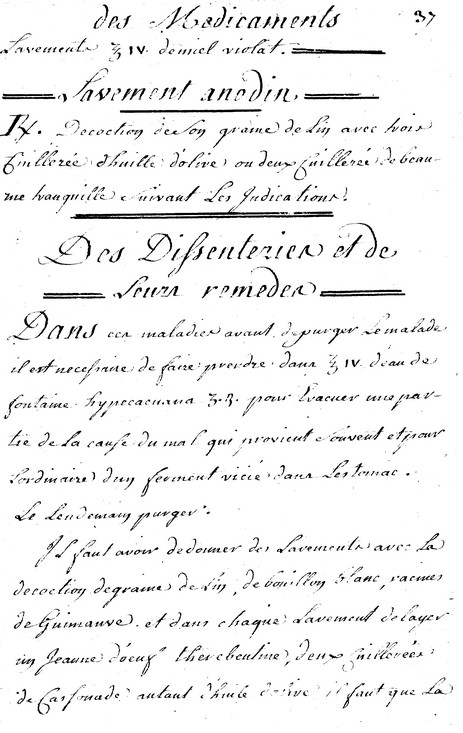 des Medicaments 37
Lavements ℥ IV. demiel violat.
Lavement anodin
℞. Decoction de Son graine de Lin avec trois
Cuillerée d'huille d'olive ou deux Cuillerée de beau-
me tranquille Suivant Les Indications.
Des Dissenteries et de
Leurs remedes
Dans ces maladies avant de purger Le malade
il est necessaire de faire prendre dans ℥ IV. d'eau de
fontaine hypocacuana pour Evacuer une par-
tie de La cause du mal qui provient Souvent et pour
Lordinaire d'un ferment vicié dans Lestomac.
Le Lendemain purger.
Il faut avoir de donner des Lavements avec La
decoction degraine de Lin, de bouillon blanc, racines
de Guimauve. et dans chaque Lavement delayer
un Jeaune d'oeuf therebentine, deux Cuillerées
de Cassonade autant d'huile d'olive il faut que La